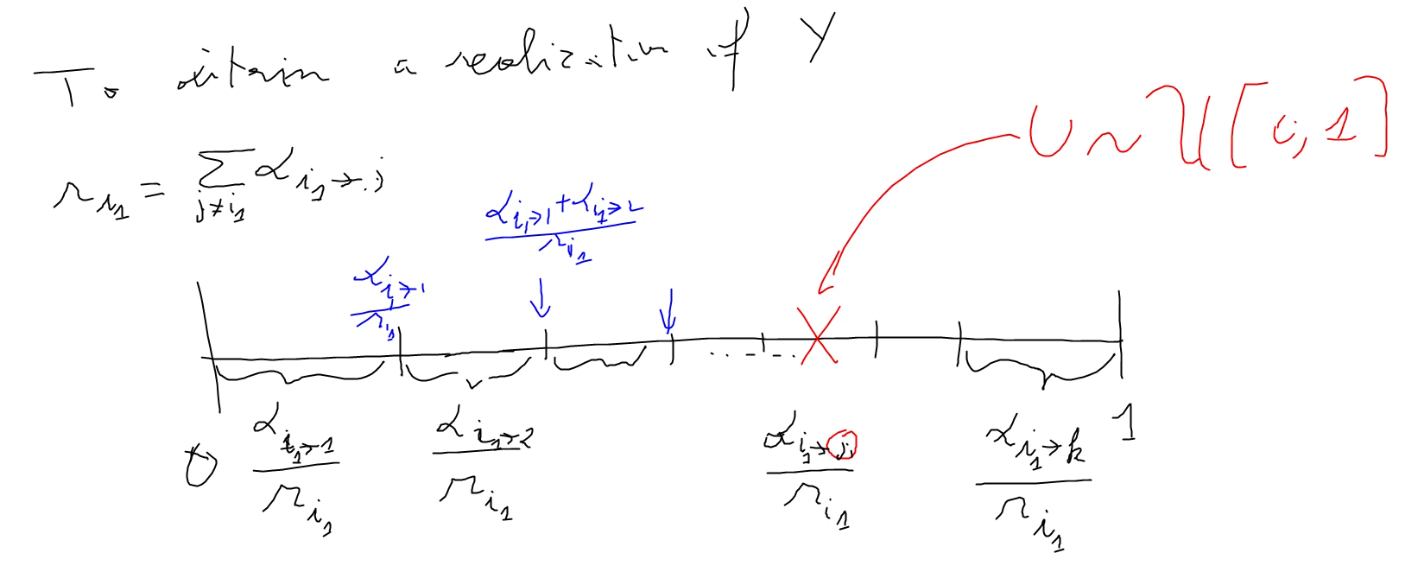 To obtain a realization of Y
U ~ U[0,1]
r_{i_1} = ∑_{j≠i_1} α_{i_1→j}
(α_{i_1→1} + α_{i_1→2}) / r_{i_1}
α_{i_1→1} / r_{i_1}
0 α_{i_1→1} / r_{i_1} α_{i_1→2} / r_{i_1} ..... α_{i_1→j} / r_{i_1} α_{i_1→k} / r_{i_1} 1